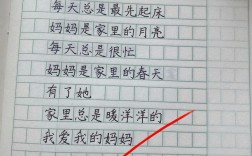 每天总是最先起床
妈妈是家里的月亮
每天总是很忙
妈妈是家里的春天
有了她
家里总是暖洋洋的
我爱我的妈妈